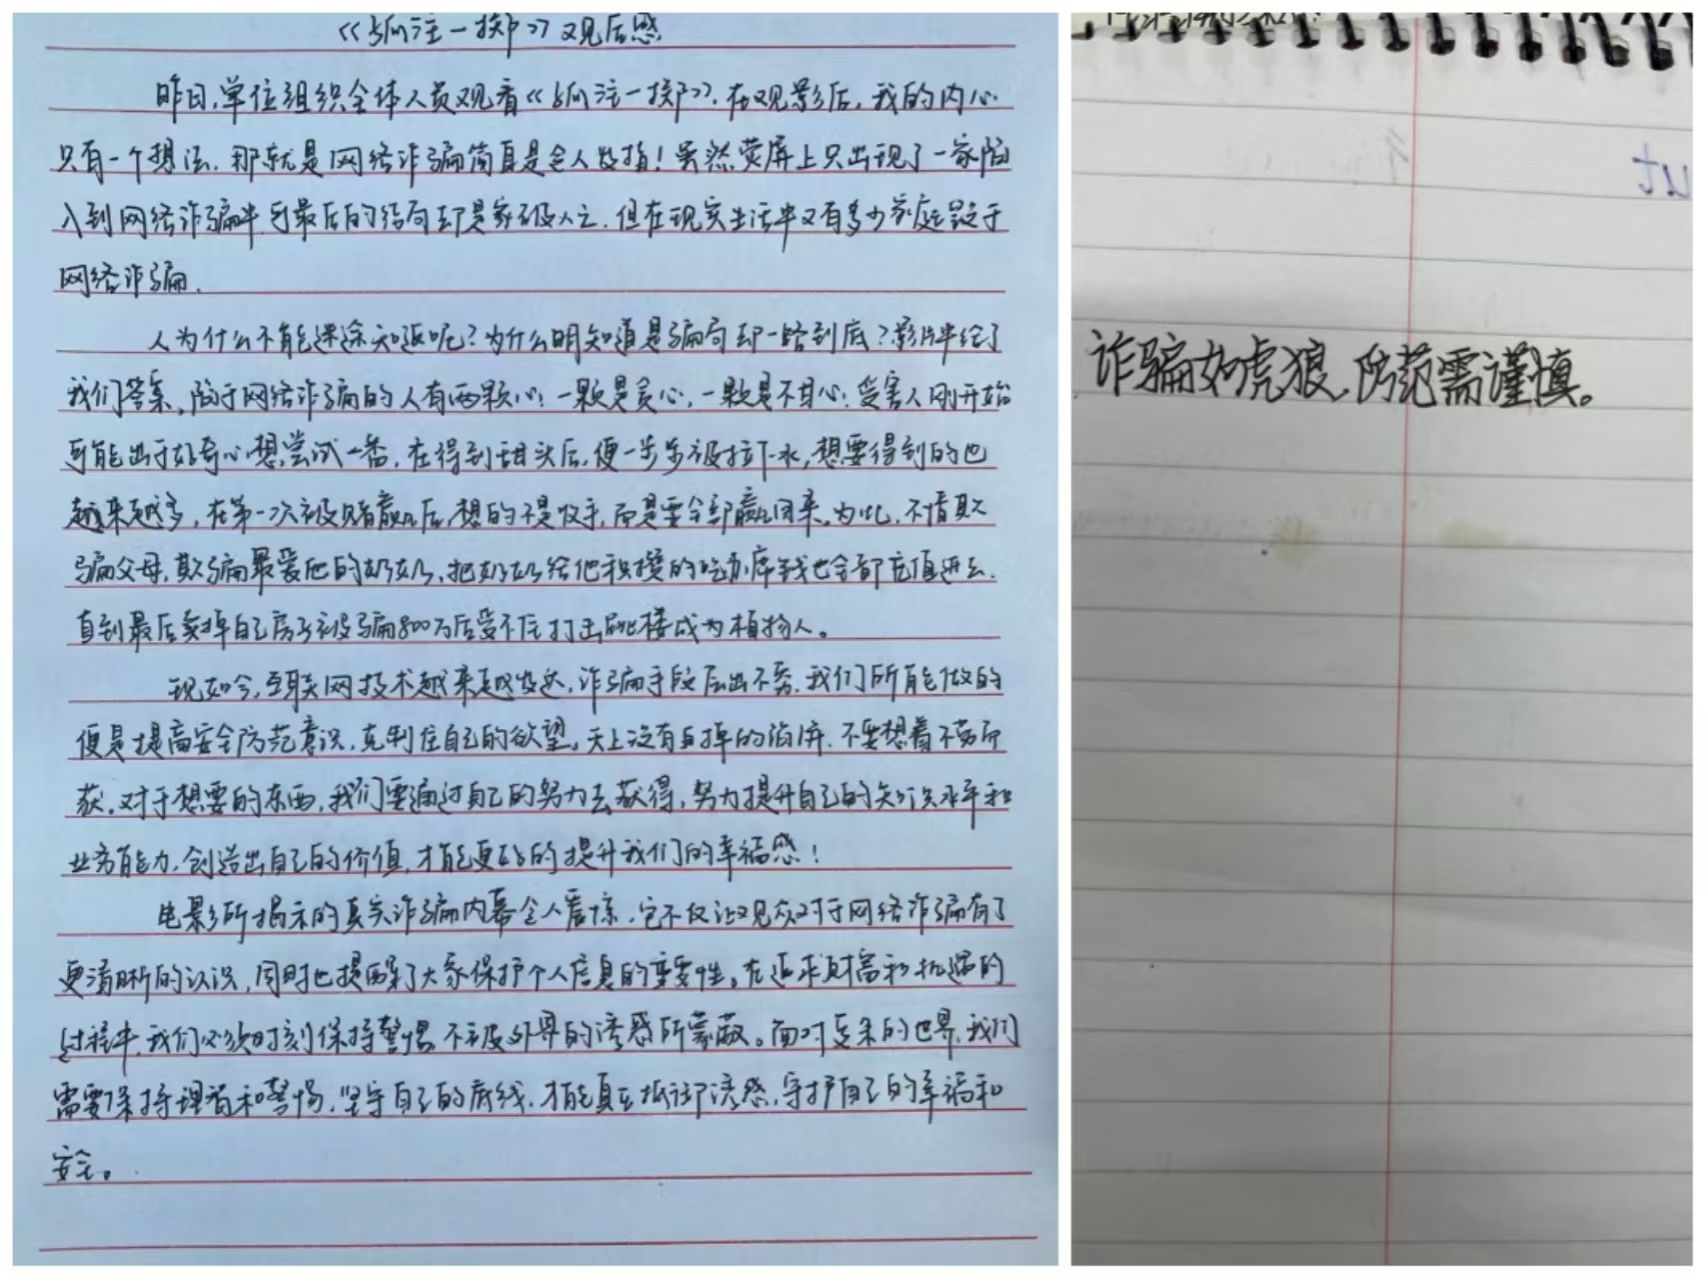 《孤注一掷》观后感
昨日,单位组织全体人员观看《孤注一掷》.在观影后,我的内心
只有一个想法.那就是网络诈骗简直是令人发指!虽然荧屏上只出现了一家陷
入到网络诈骗中可最后的结局却是家破人亡.但在现实生活中又有多少家庭毁于
网络诈骗.
人为什么不能迷途知返呢?为什么明知道是骗局却一路到底?影片中给了
我们答案,陷于网络诈骗的人有两颗心:一颗是贪心,一颗是不甘心.受害人刚开始
可能出于好奇心想尝试一番,在得到甜头后,便一步步被拉下水,想要得到的也
越来越多,在第一次被赌赢后,想的不是收手,而是要全部赢回来.为此,不惜欺
骗父母,欺骗最爱他的奶奶,把奶奶给他积攒的吃席钱也全部充值进去.
直到最后卖掉自己房子被骗800万后受不住打击跳楼成为植物人。
现如今,互联网技术越来越发达,诈骗手段层出不穷.我们所能做的
便是提高安全防范意识,克制住自己的欲望。天上没有白掉的馅饼.不要想着不劳所
获.对于想要的东西,我们要通过自己的努力去获得,努力提升自己的知识水平和
业务能力,创造出自己的价值,才能更好的提升我们的幸福感!
电影所揭示的真实诈骗内幕令人震惊.它不仅让观众对于网络诈骗有了
更清晰的认识,同时也提醒了大家保护个人信息的重要性。在追求财富和机遇的
过程中,我们必须时刻保持警惕,不被外界的诱惑所蒙蔽。面对复杂的世界,我们
需要保持理智和警惕,坚守自己的底线.才能真正抵御诱惑,守护自己的幸福和
安全。
诈骗如虎狼,防范需谨慎。
ut